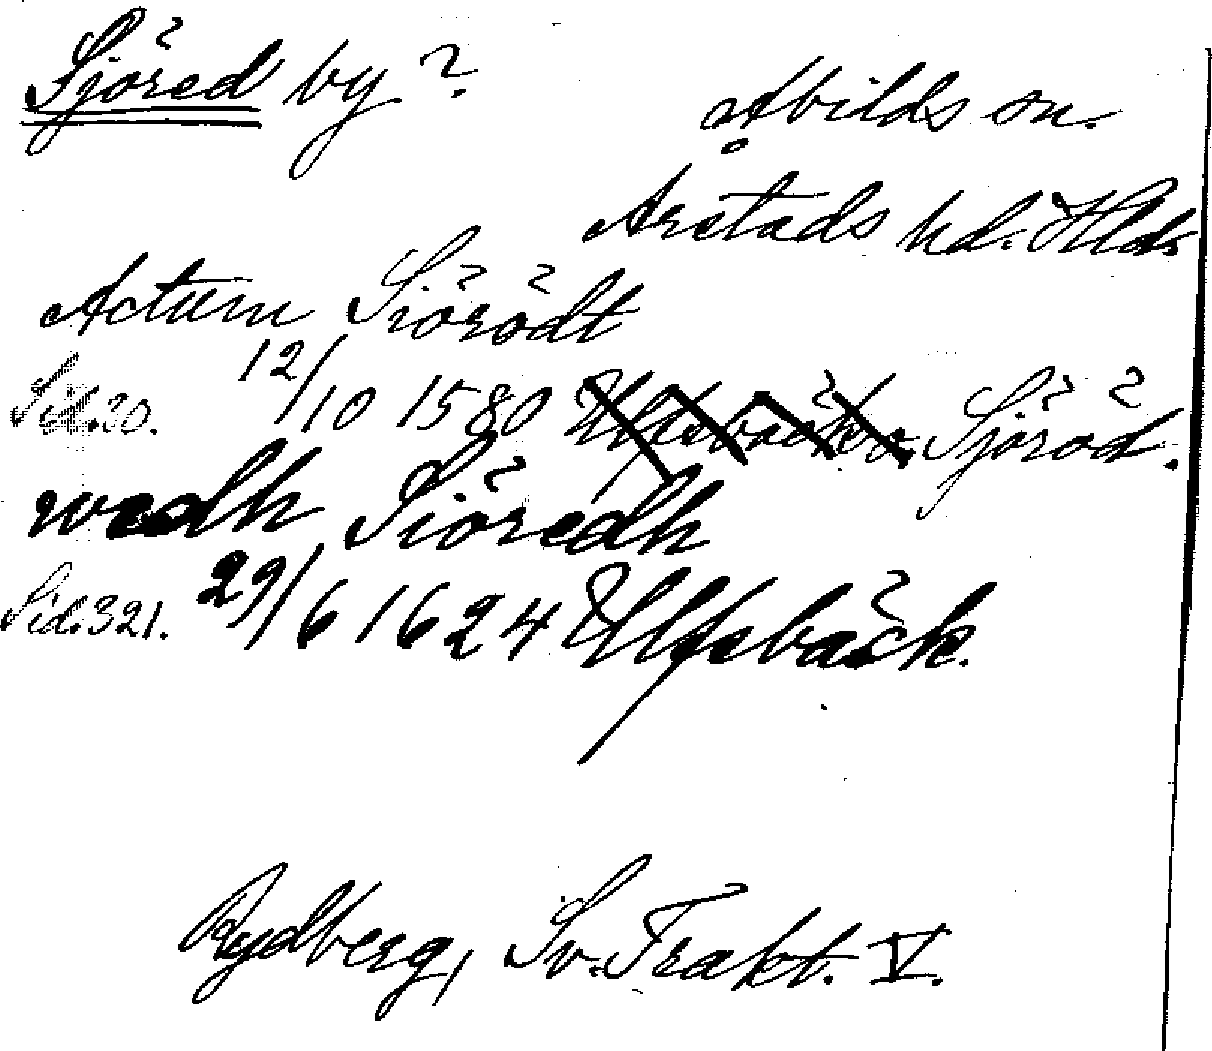 Sjöred by?
Abilds sn.
Årstads hd. Hlds
Actum Siörödt
Sid. 20. 12/10 1580 Ulfsbäcka Sjöröd.
wedh Siöredh
Sid. 321. 29/6 1624 Ulfsbäck.
Rydberg, Sv. Trakt. V.